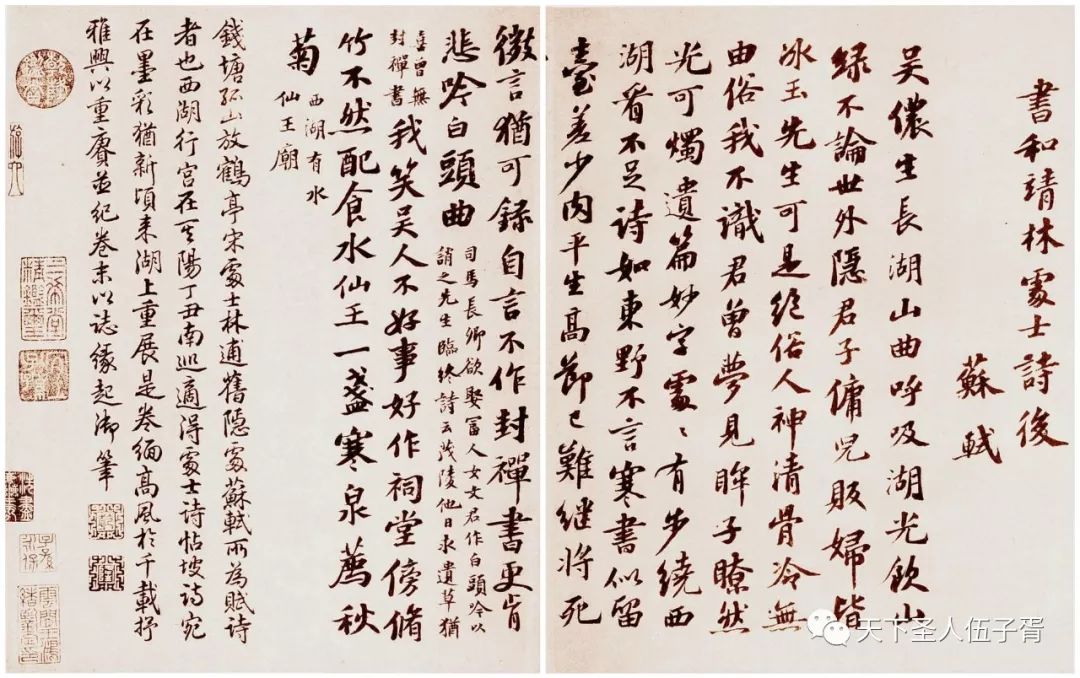 書和靖林處士詩後
蘇軾
吳儂生長湖山曲呼吸湖光飲山
緑不論世外隱君子傭兒販婦皆
冰玉先生可是絕俗人神清骨冷無
由俗我不識君曾夢見眸子瞭然
光可燭遺篇妙字處〻有步繞西
湖看不足詩如東野不言寒書似留
臺差少肉平生高節已難继將死
微言猶可録自言不作封禪書更肯
悲吟白頭曲
司馬長卿欲娶富人女文君作白頭吟以
誚之先生臨終詩云茂陵他日求遺草猶
喜曾無
封禪書
我笑吳人不好事好作祠堂傍脩
竹不然配食水仙王一盞寒泉薦秋
菊
西湖有水
仙王廟
錢塘孤山放鶴亭宋處士林逋舊隱處蘇軾所為賦詩
者也西湖行宮在其陽丁丑南巡適得處士詩帖坡詩宛
在墨彩猶新頃来湖上重展是卷緬高風於千載抒
雅興以重賡並紀卷末以誌緣起御筆
三希堂
精鑑璽
天下圣人伍子胥